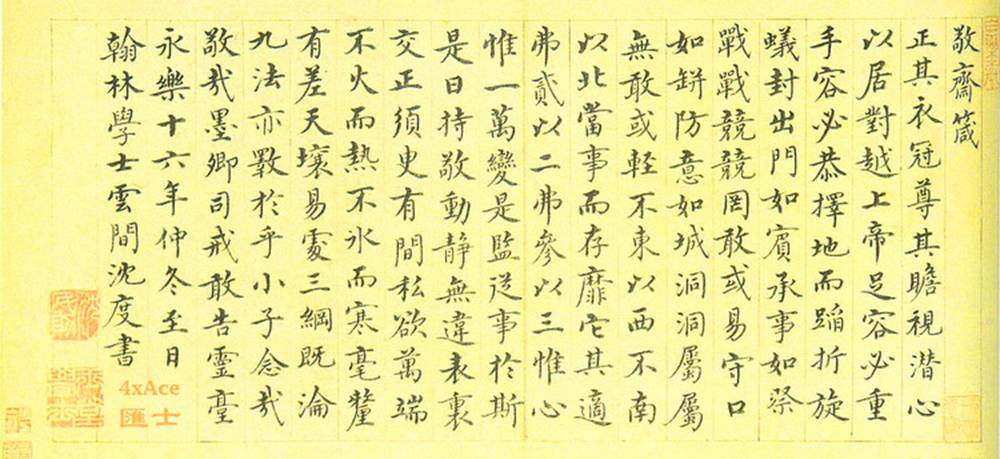 敬齋箴
正其衣冠尊其瞻視潜心
以居對越上帝足容必重
手容必恭擇地而蹈折旋
蟻封出門如賓承事如祭
戰戰競競罔敢或易守口
如缾防意如城洞洞屬屬
無敢或輕不東以西不南
以北當事而存靡它其適
弗貳以二弗參以三惟心
惟一萬變是監從事於斯
是曰持敬動靜無違表裏
交正須臾有間私欲萬端
不火而熱不氷而寒毫釐
有差天壤易處三綱既淪
九法亦斁於乎小子念哉
敬哉墨卿司戒敢告靈臺
永樂十六年仲冬至日
翰林學士雲間沈度書
4xAce
匯士